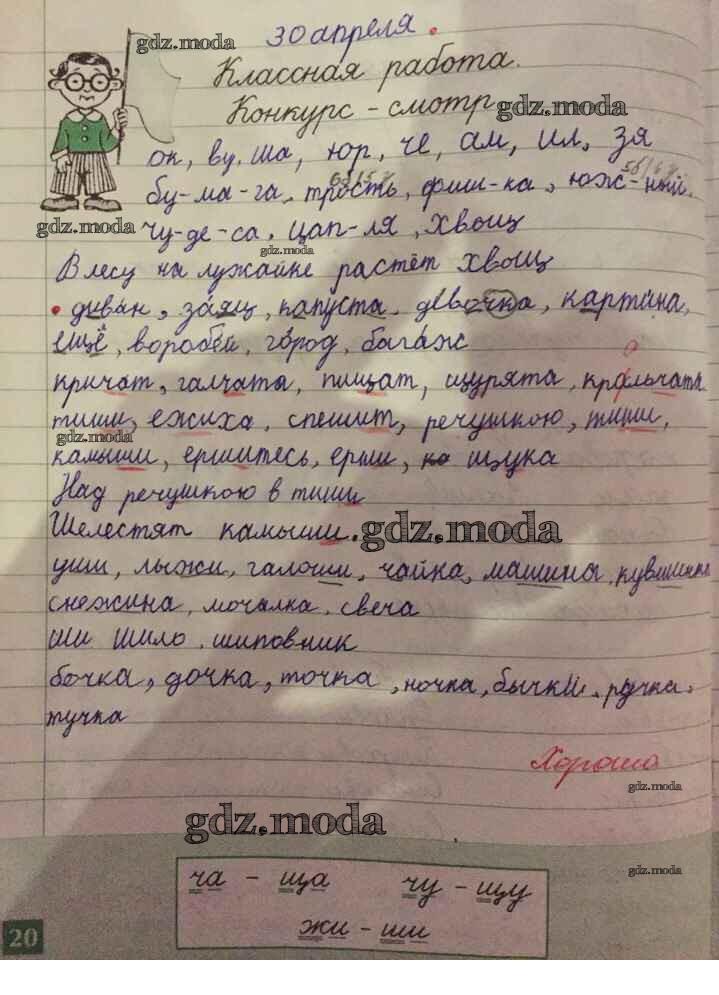 gdz.moda
30 апреля.
Классная работа.
Конкурс - смотр gdz.moda
ок, ву, ша, юр, че, ам, ил, зя
бу-ма-га, трость, фиш-ка, юж-ный.
gdz.moda
чу-де-са, цап-ля, хвощ
В лесу на лужайке растёт хвощ
диван, заяц, капуста, девочка, картина,
ещё, воробей, город, багаж
кричат, галчата, пищат, щурята, крольчата
тиши, ежиха, спешит, речушкою, тиши,
gdz.moda
камыши, ершитесь, ерши, щука
Над речушкою в тиши
Шелестят камыши. gdz.moda
уши, лыжи, галоши, чайка, машина, кувшинка
снежина, мочалка, свеча
ши шило, шиповник
бочка, дочка, точка, ночка, бычки, ручка,
тучка
Хорошо
gdz.moda
gdz.moda
gdz.moda
ча - ща чу - щу
жи - ши
20